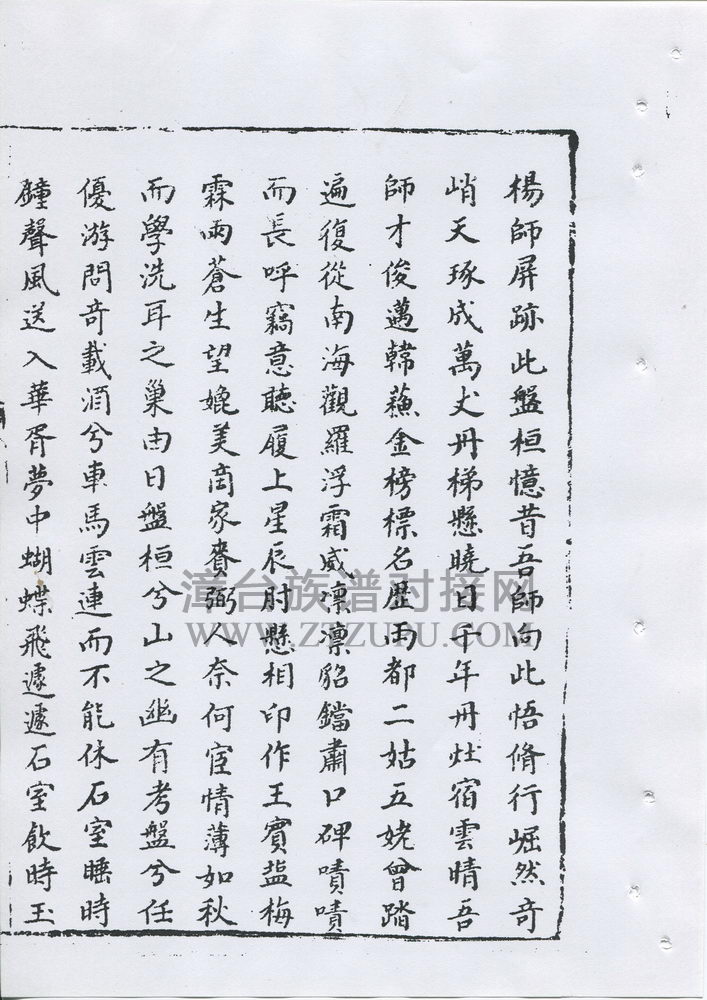 楊師屏跡此盤桓憶昔吾師向此悟脩行崛然奇
峭天琢成萬丈丹梯懸曉日千年丹灶宿雲晴吾
師才俊邁韓蘓金榜標名歷兩都二姑五姥曾踏
遍復從南海觀羅浮霜威凛凛豸鐺肅口碑嘖嘖
而長呼竊意聽履上星辰肘懸相印作王賓盐梅
霖雨蒼生望媲美商家賚弼人奈何宦情薄如秋
而學洗耳之巢由日盤桓兮山之幽有考盤兮任
優游問奇載酒兮車馬雲連而不能休石室睡時
鐘聲風送入華胥夢中蝴蝶飛遽遽石室飲時玉
漳台族谱对接网
WWW.ZTZUPU.COM